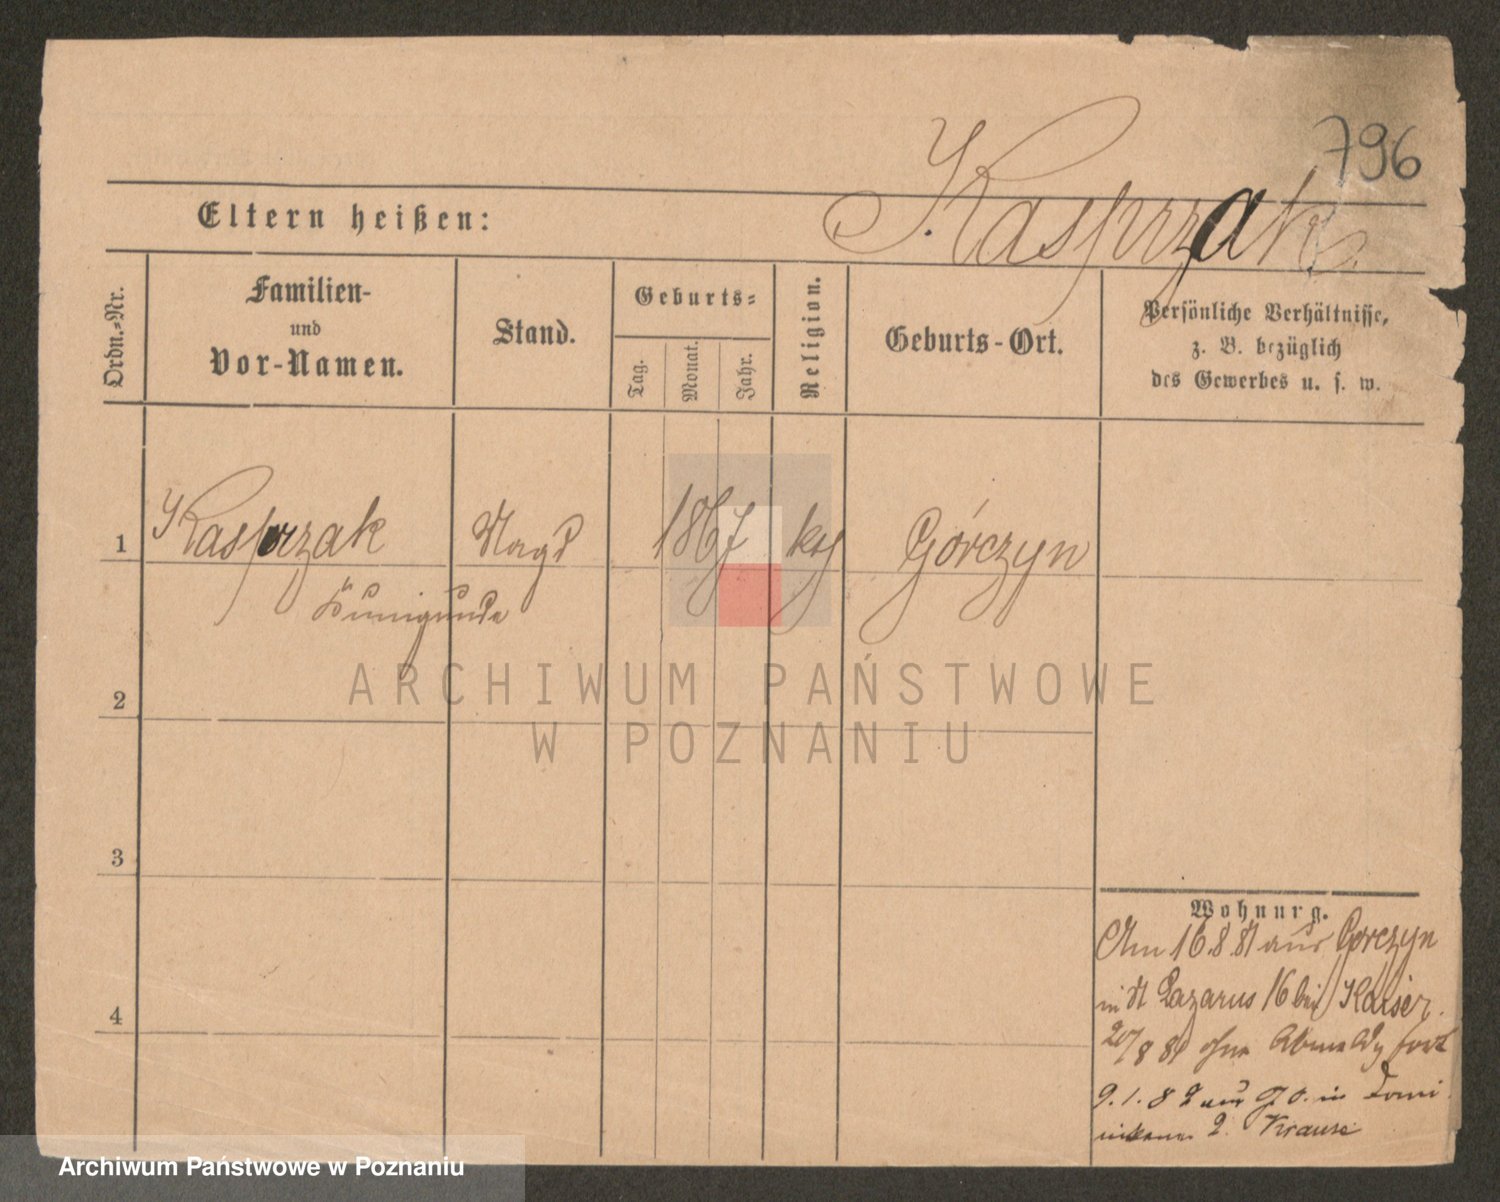 796
Kasprzak.
Eltern heißen:
Ordn.-Nr.
Familien-
und
Vor-Namen.
Stand.
Geburts-
Tag.
Monat.
Jahr.
Religion.
Geburts-Ort.
Persönliche Verhältnisse,
z. B. bezüglich
des Gewerbes u. s. w.
1 Kasprzak Magd 1867 Górczyn
Kunigunde
2
3
4
ARCHIWUM PAŃSTWOWE
W POZNANIU
Wohnung.
Am 16.8.81 aus Gorczyn
in St Lazarus 16 bei Kaiser.
20/8 81 ohne fort
9.1.82 aus in Domi
nikaner 2. Krause
Archiwum Państwowe w Poznaniu